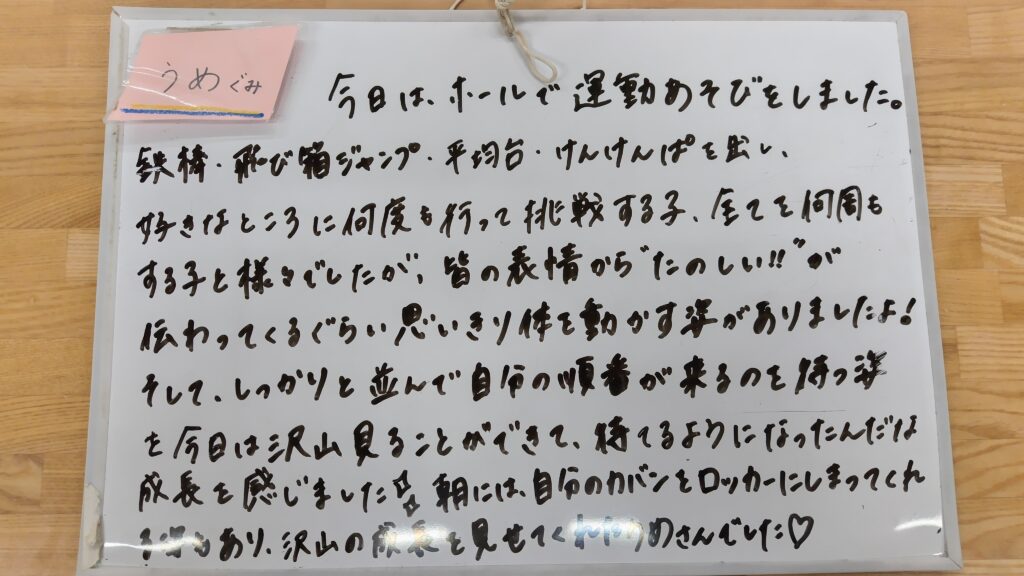 うめぐみ
今日は、ホールで運動あそびをしました。
鉄棒・飛び箱ジャンプ・平均台・けんけんぱを出し、
好きなところに何度も行って挑戦する子、全てを何周も
する子と様々でしたが、皆の表情から"たのしい!!"が
伝わってくるぐらい思いきり体を動かす姿がありましたよ!
そして、しっかりと並んで自分の順番が来るのを待つ姿
を今日は沢山見ることができて、待てるようになったんだな
成長を感じました☆☆ 朝には、自分のカバンをロッカーにしまってくれ
る姿もあり、沢山の成長を見せてくれたうめさんでした♡